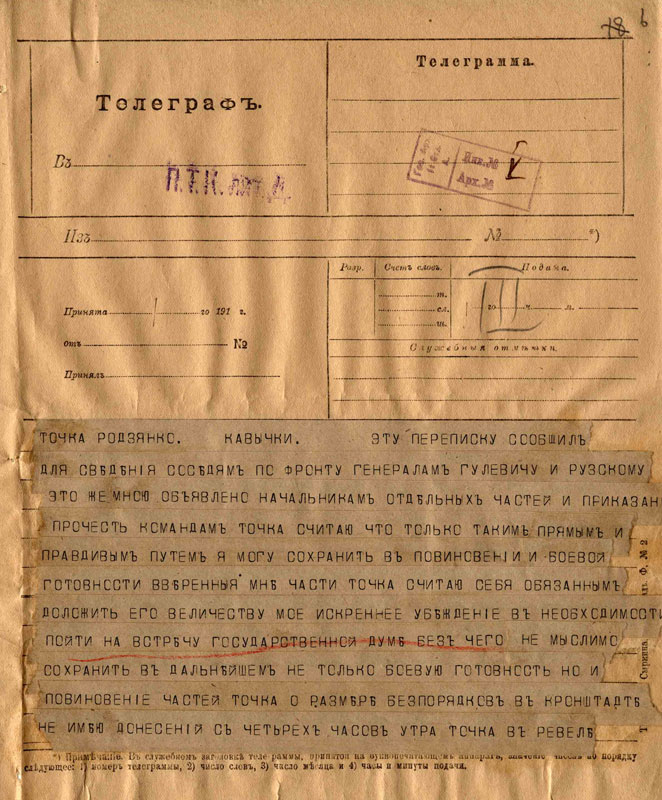 18 6
Телеграмма.
Телеграфъ.
Въ
П.Т.К.
Вх.№
Арх.№
Изъ № *)
Разр. Счетъ словъ. Подача.
т.
Принята го 191 г. сл. го ч. м.
ш.
отъ №
Служебныя отмѣтки.
Принялъ
ТОЧКА РОДЗЯНКО. КАВЫЧКИ. ЭТУ ПЕРЕПИСКУ СООБШИЛЪ
ДЛЯ СВѢДЕНІЯ СОСѢДЯМЪ ПО ФРОНТУ ГЕНЕРАЛАМЪ ГУЛЕВИЧУ И РУЗСКОМУ
ЭТО ЖЕ МНОЮ ОБЪЯВЛЕНО НАЧАЛЬНИКАМЪ ОТДѢЛЬНЫХЪ ЧАСТЕЙ И ПРИКАЗАН
ПРОЧЕСТЬ КОМАНДАМЪ ТОЧКА СЧИТАЮ ЧТО ТОЛЬКО ТАКИМЪ ПРЯМЫМЪ И
ПРАВДИВЫМЪ ПУТЕМЪ Я МОГУ СОХРАНИТЬ ВЪ ПОВИНОВЕНІИ И БОЕВОЙ
ГОТОВНОСТИ ВВѢРЕННЫЯ МНѢ ЧАСТИ ТОЧКА СЧИТАЮ СЕБЯ ОБЯЗАННЫМЪ
ДОЛОЖИТЬ ЕГО ВЕЛИЧЕСТВУ МОЕ ИСКРЕННЕЕ УБѢЖДЕНІЕ ВЪ НЕОБХОДИМОСТИ
ПОЙТИ НА ВСТРѢЧУ ГОСУДАРСТВЕННОЙ ДУМѢ БЕЗЪ ЧЕГО НЕ МЫСЛИМО
СОХРАНИТЬ ВЪ ДАЛЬНѢЙШЕМЪ НЕ ТОЛЬКО БОЕВУЮ ГОТОВНОСТЬ НО И
ПОВИНОВЕНІЕ ЧАСТЕЙ ТОЧКА О РАЗМѢРѢ БЕЗПОРЯДКОВЪ ВЪ КРОНШТАДТѢ
НЕ ИМѢЮ ДОНЕСЕНІЙ СЪ ЧЕТЫРЕХЪ ЧАСОВЪ УТРА ТОЧКА ВЪ РЕВЕЛѢ
Ф. № 2
*) Примѣчаніе. Въ служебномъ заголовкѣ телеграммы, принятой на буквопечатающемъ аппаратѣ, значеніе чиселъ по порядку
слѣдующее: 1) номеръ телеграммы, 2) число словъ, 3) число мѣсяца и 4) часы и минуты подачи.